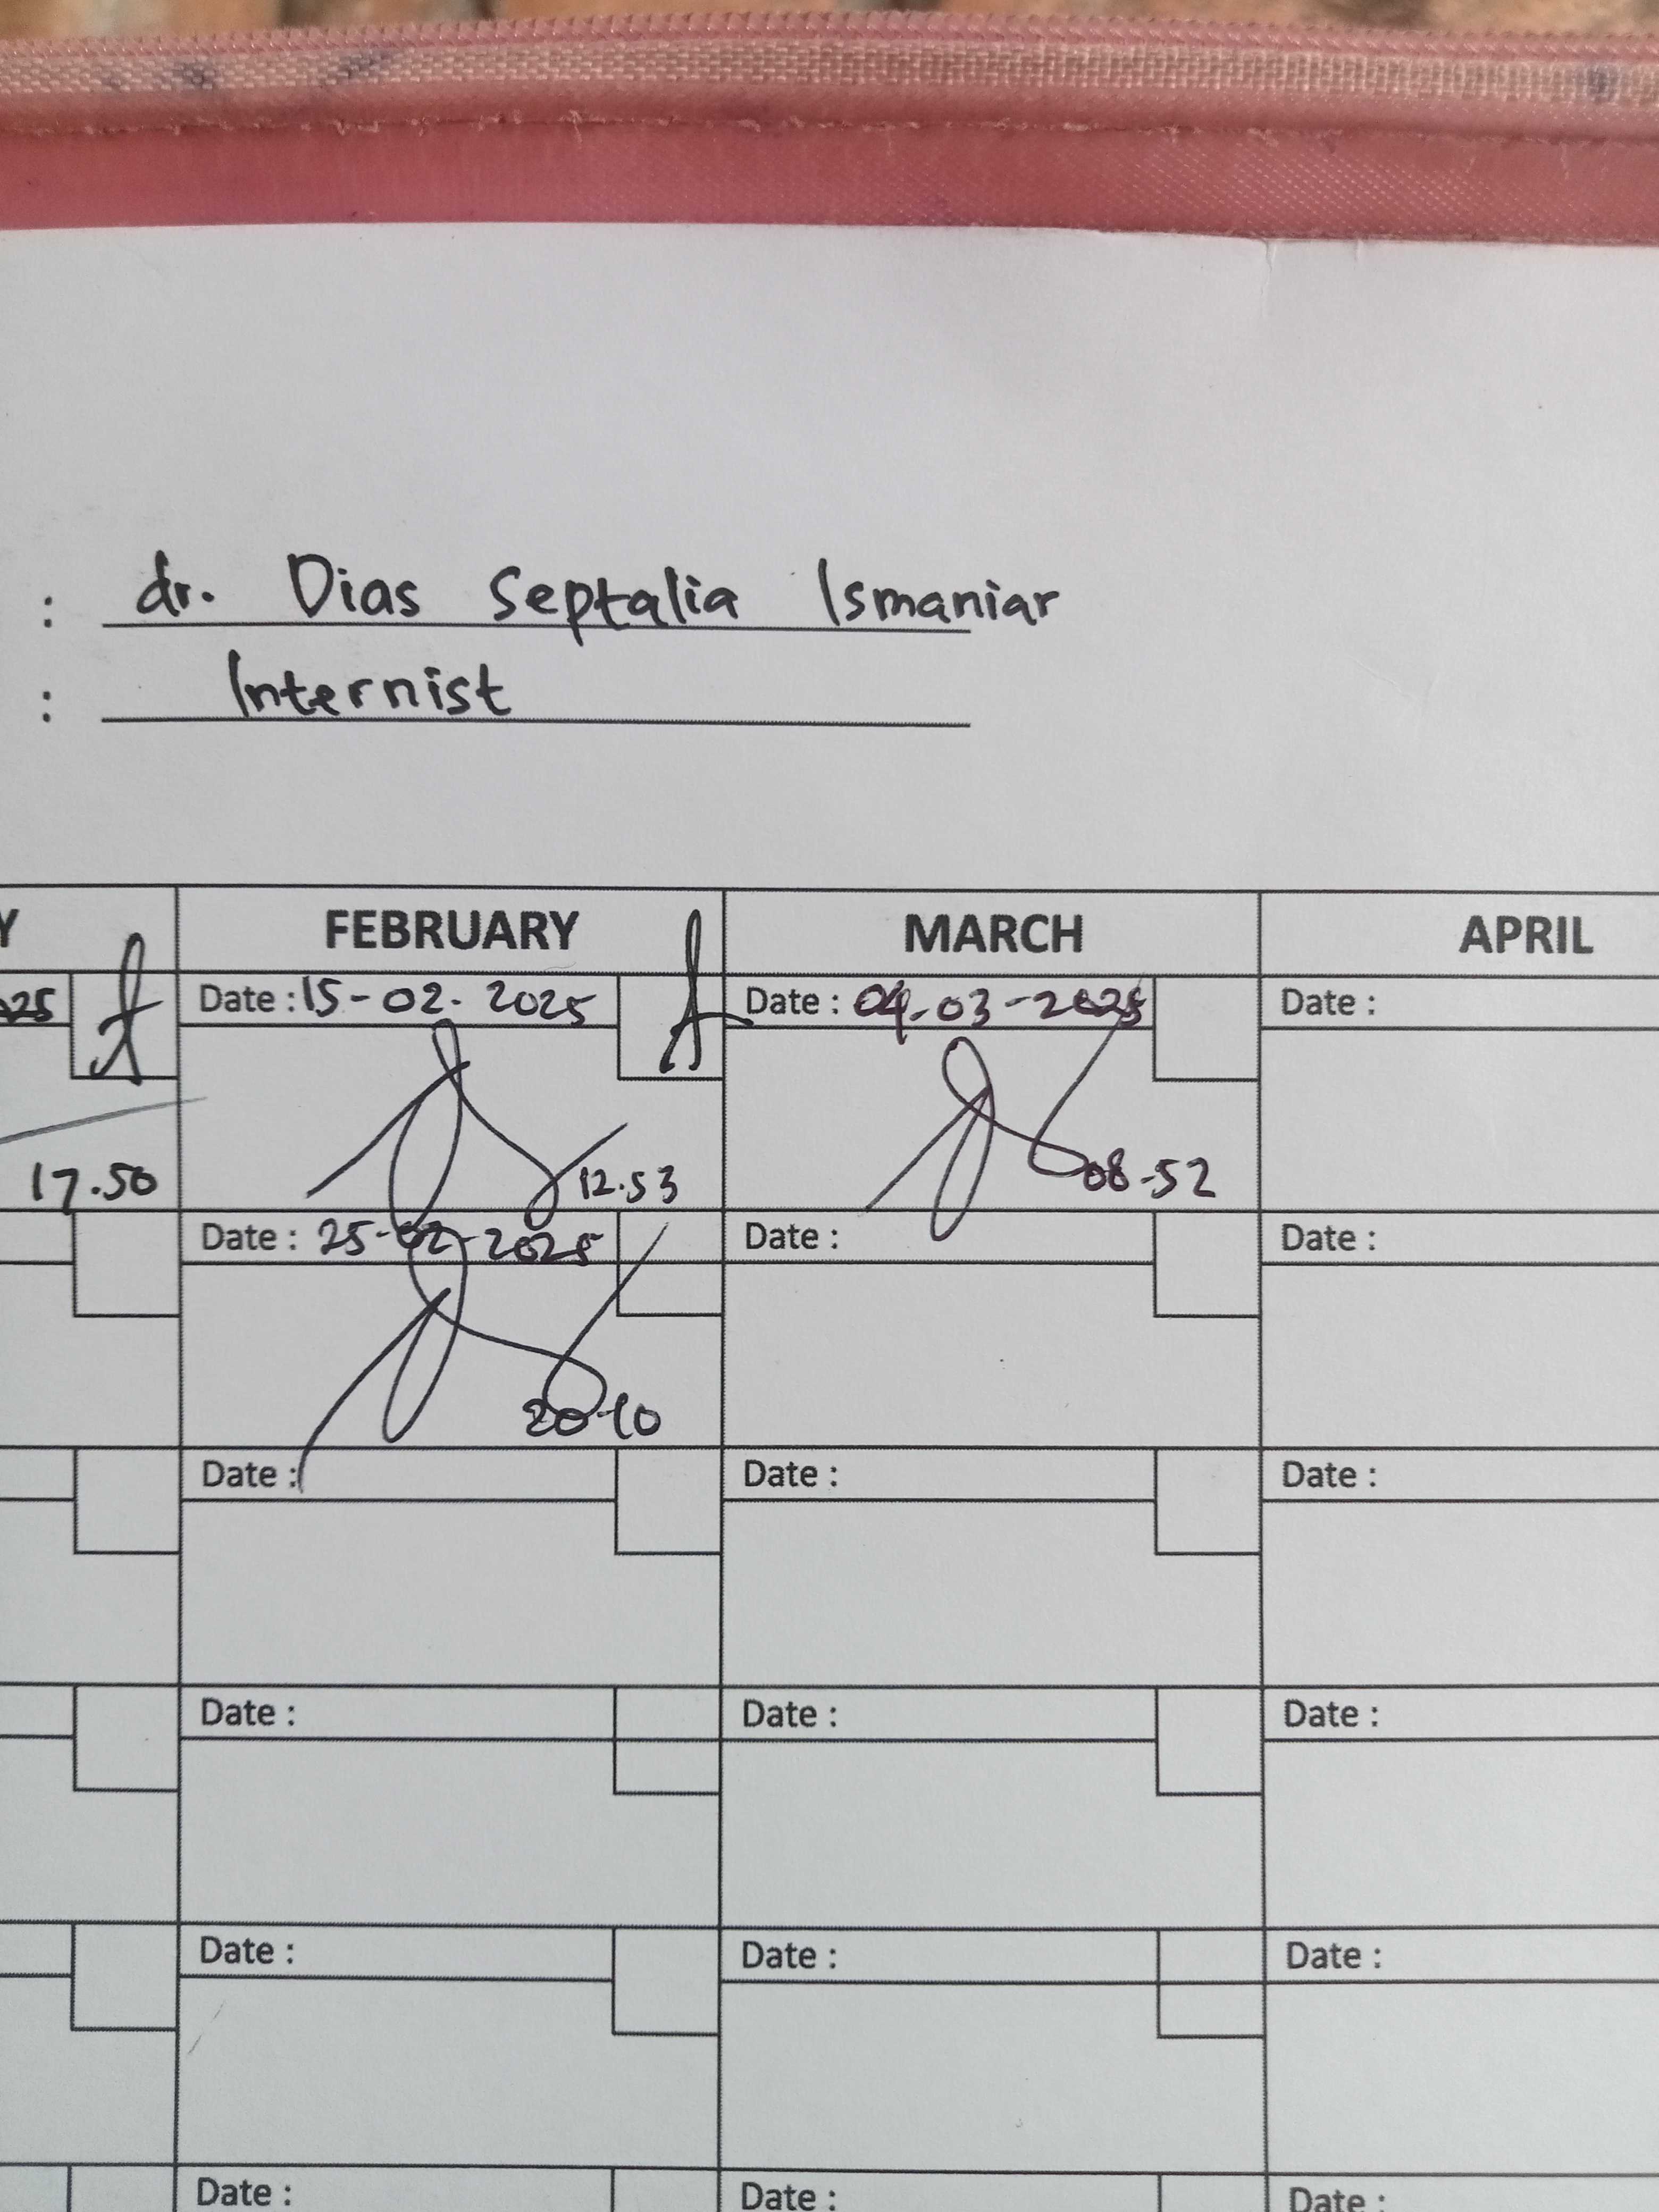 : dr. Dias Septalia Ismaniar
: Internist
Y FEBRUARY MARCH APRIL
025 Date : 15-02-2025 Date : 04-03-2025 Date :
17.50 12.53 08-52
Date : 25-02-2025 Date : Date :
20-10
Date : Date : Date :
Date : Date : Date :
Date : Date : Date :
Date : Date : Date :